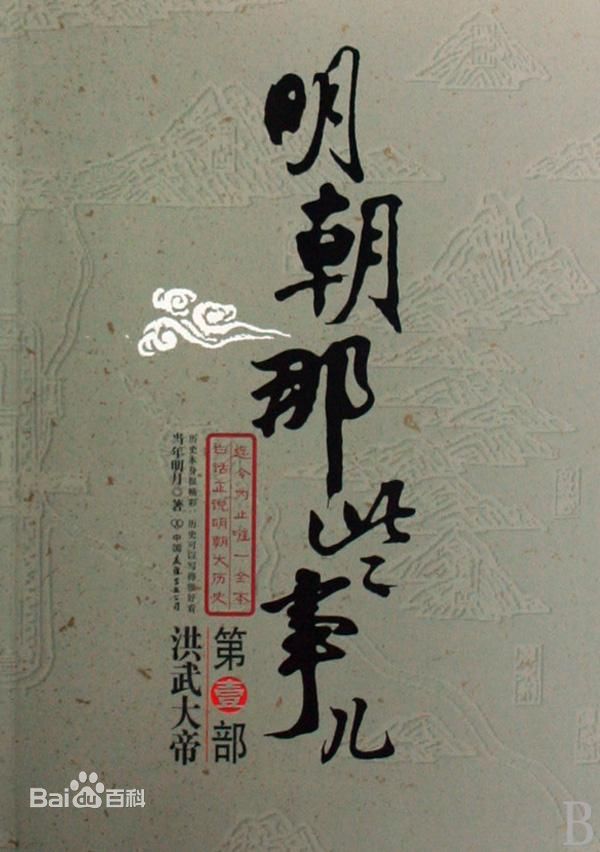 明朝那些事儿
迄今为止唯一全本
白话正说明朝大历史
历史本身很精彩,历史可以写得很好看
当年明月 著 中国友谊出版公司
第壹部
洪武大帝
Bai du 百科
B